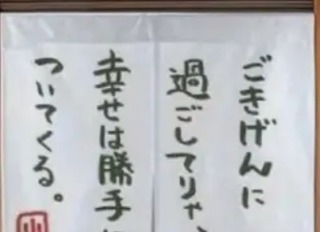 ごきげんに
過ごしてりゃ
幸せは勝手に
ついてくる。
山